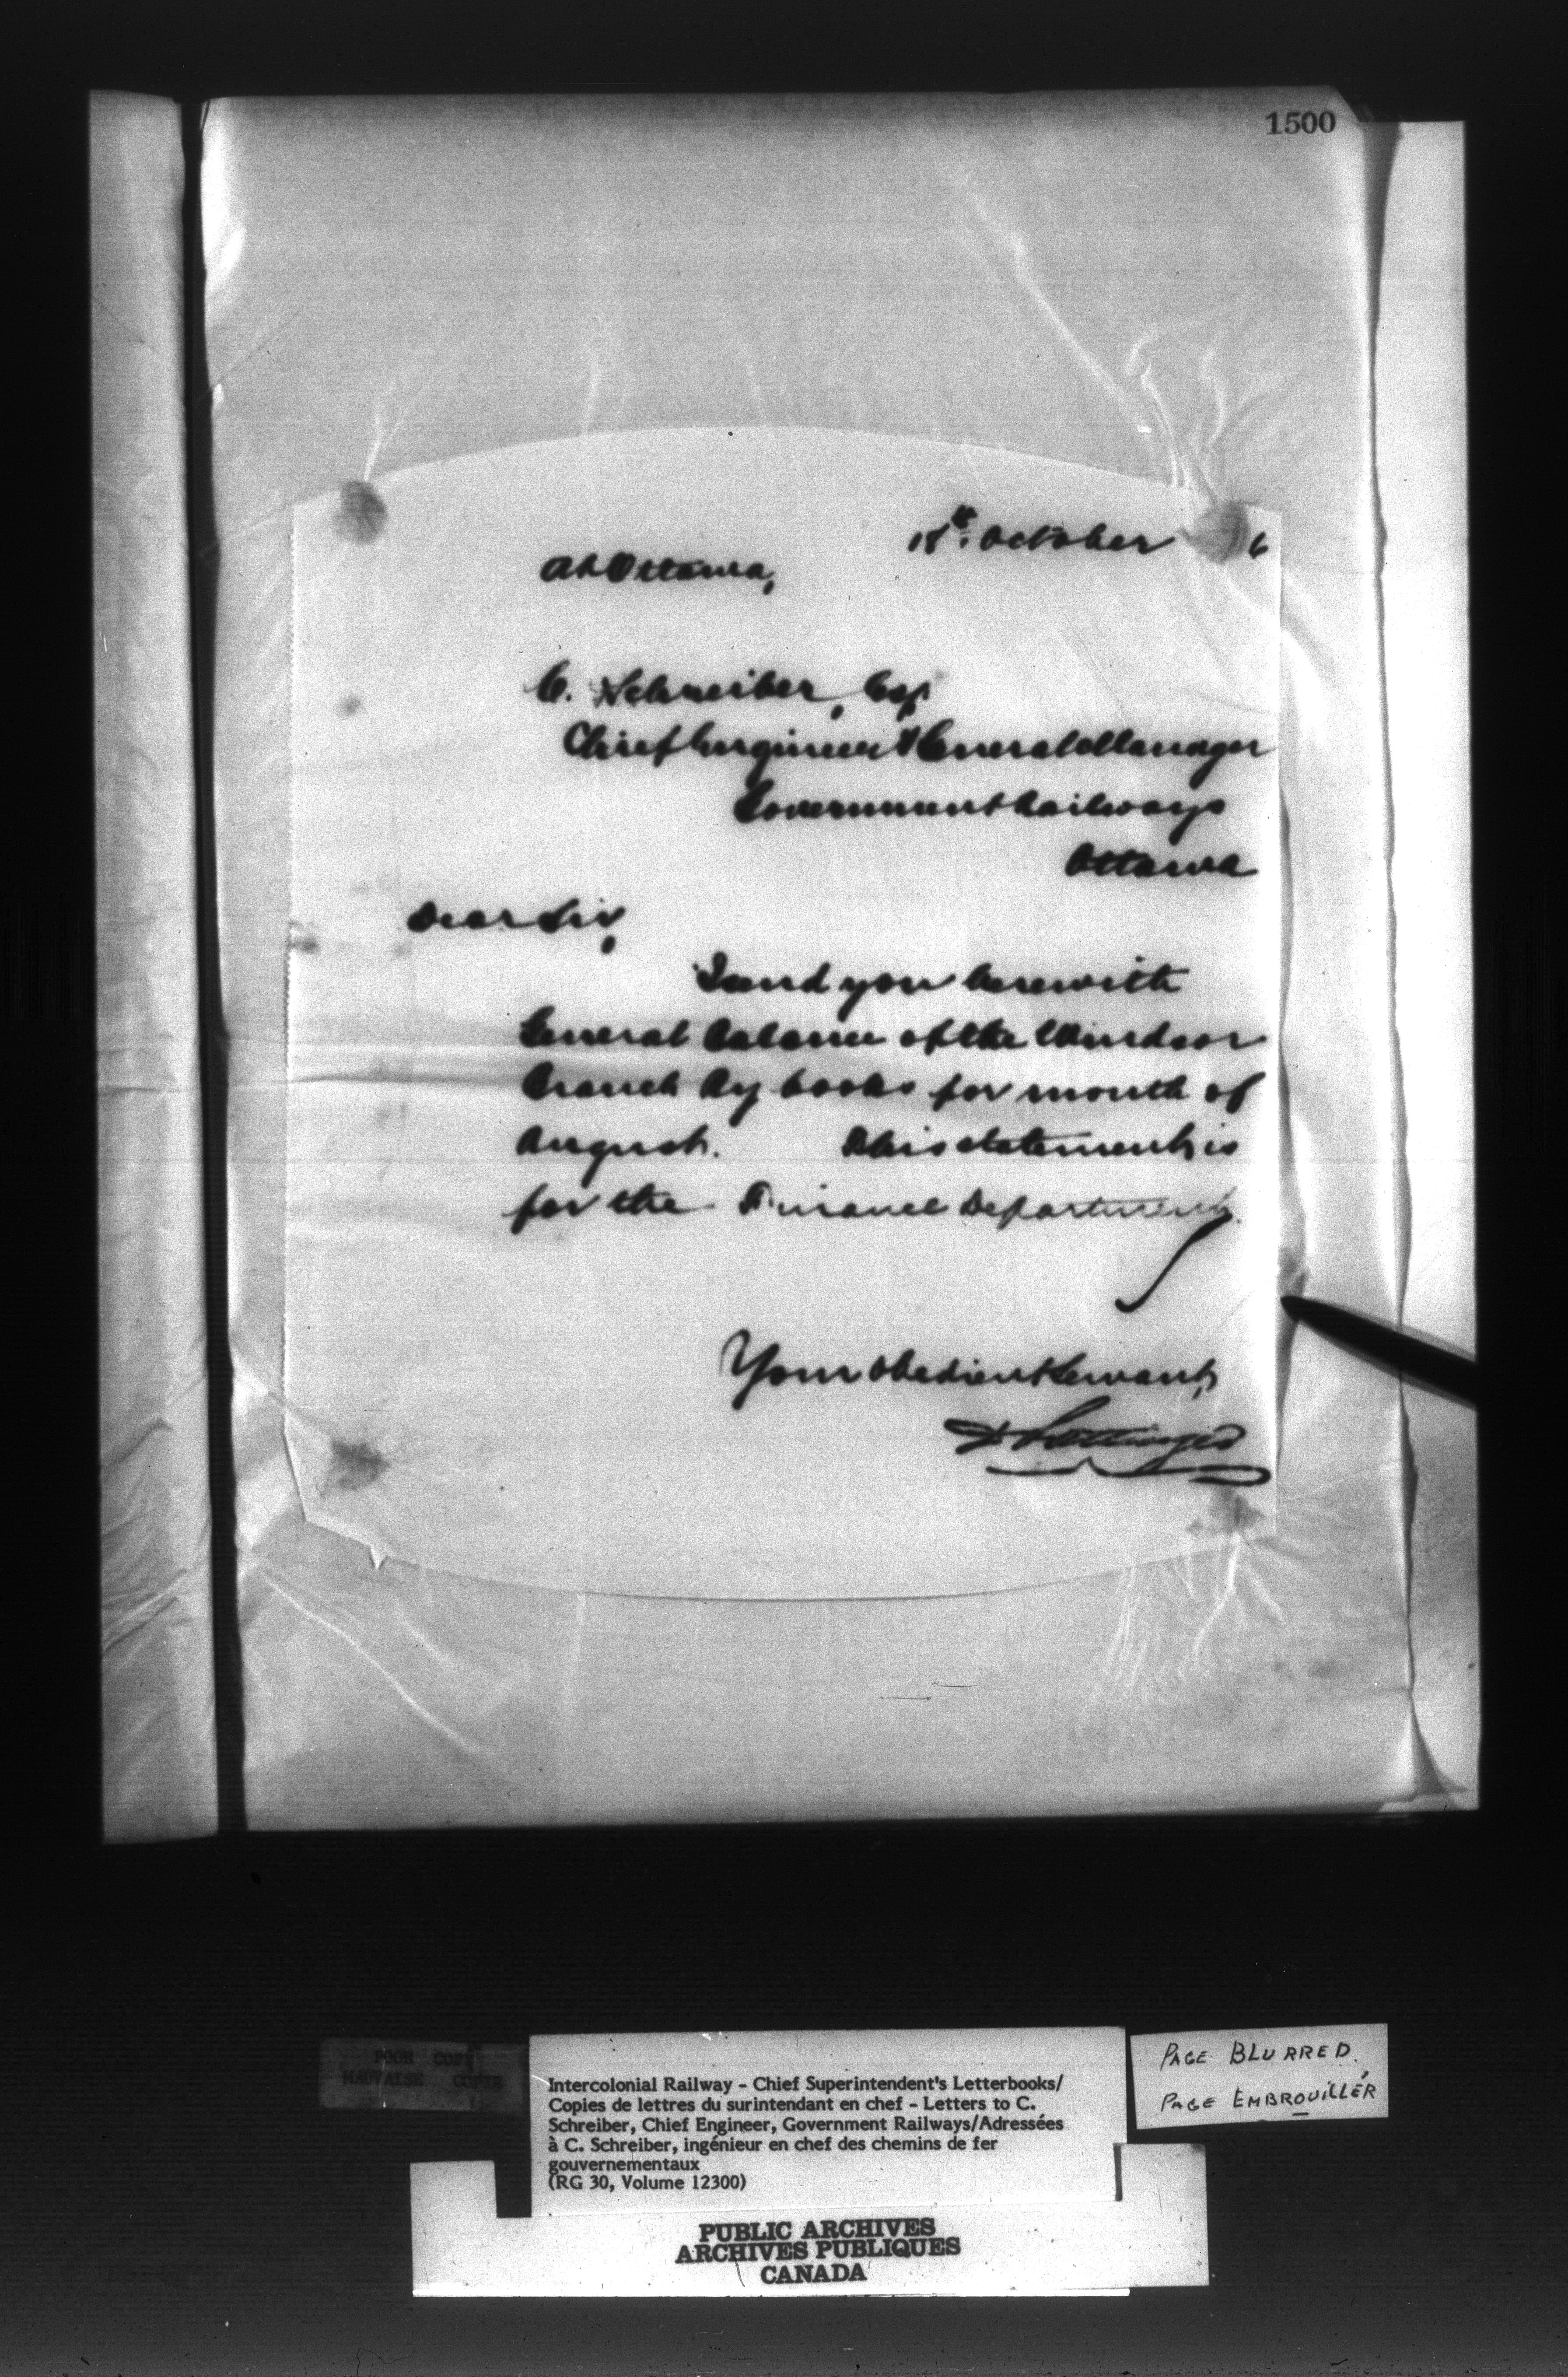 1500
18th October 6
At Ottawa,
C. Schreiber, Esq
Chief Engineer & General Manager
Government Railways
Ottawa
Dear Sir,
I send you herewith
General Balance of the Windsor
Branch Ry books for month of
August. This statement is
for the Finance Department.
Your obedient Servant,
D Pottinger
POUR COPY
MAUVAISE COPIE
Intercolonial Railway - Chief Superintendent's Letterbooks/
Copies de lettres du surintendant en chef - Letters to C.
Schreiber, Chief Engineer, Government Railways/Adressées
à C. Schreiber, ingénieur en chef des chemins de fer
gouvernementaux
(RG 30, Volume 12300)
PAGE BLURRED
PAGE EMBROUILLÉR
PUBLIC ARCHIVES
ARCHIVES PUBLIQUES
CANADA